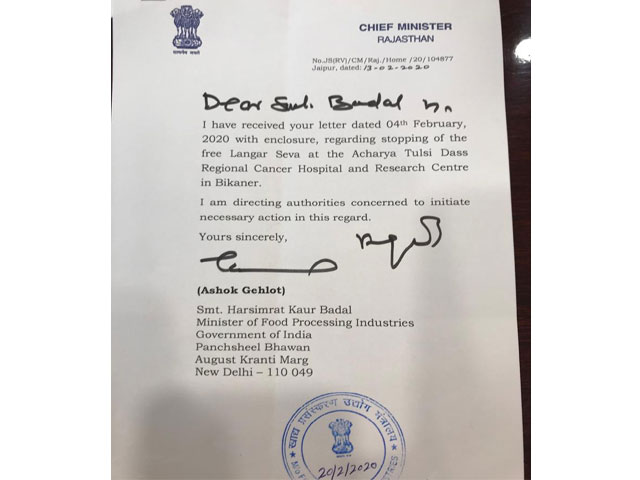 सत्यमेव जयते
CHIEF MINISTER
RAJASTHAN
No.JS(RV)/CM/Raj./Home/20/104877
Jaipur, dated: 13-02-2020
Dear Smt. Badal
I have received your letter dated 04th February,
2020 with enclosure, regarding stopping of the
free Langar Seva at the Acharya Tulsi Dass
Regional Cancer Hospital and Research Centre
in Bikaner.
I am directing authorities concerned to initiate
necessary action in this regard.
Yours sincerely,
(Ashok Gehlot)
Smt. Harsimrat Kaur Badal
Minister of Food Processing Industries
Government of India
Panchsheel Bhawan
August Kranti Marg
New Delhi – 110 049
खाद्य प्रसंस्करण उद्योग मंत्रालय
20/2/2020